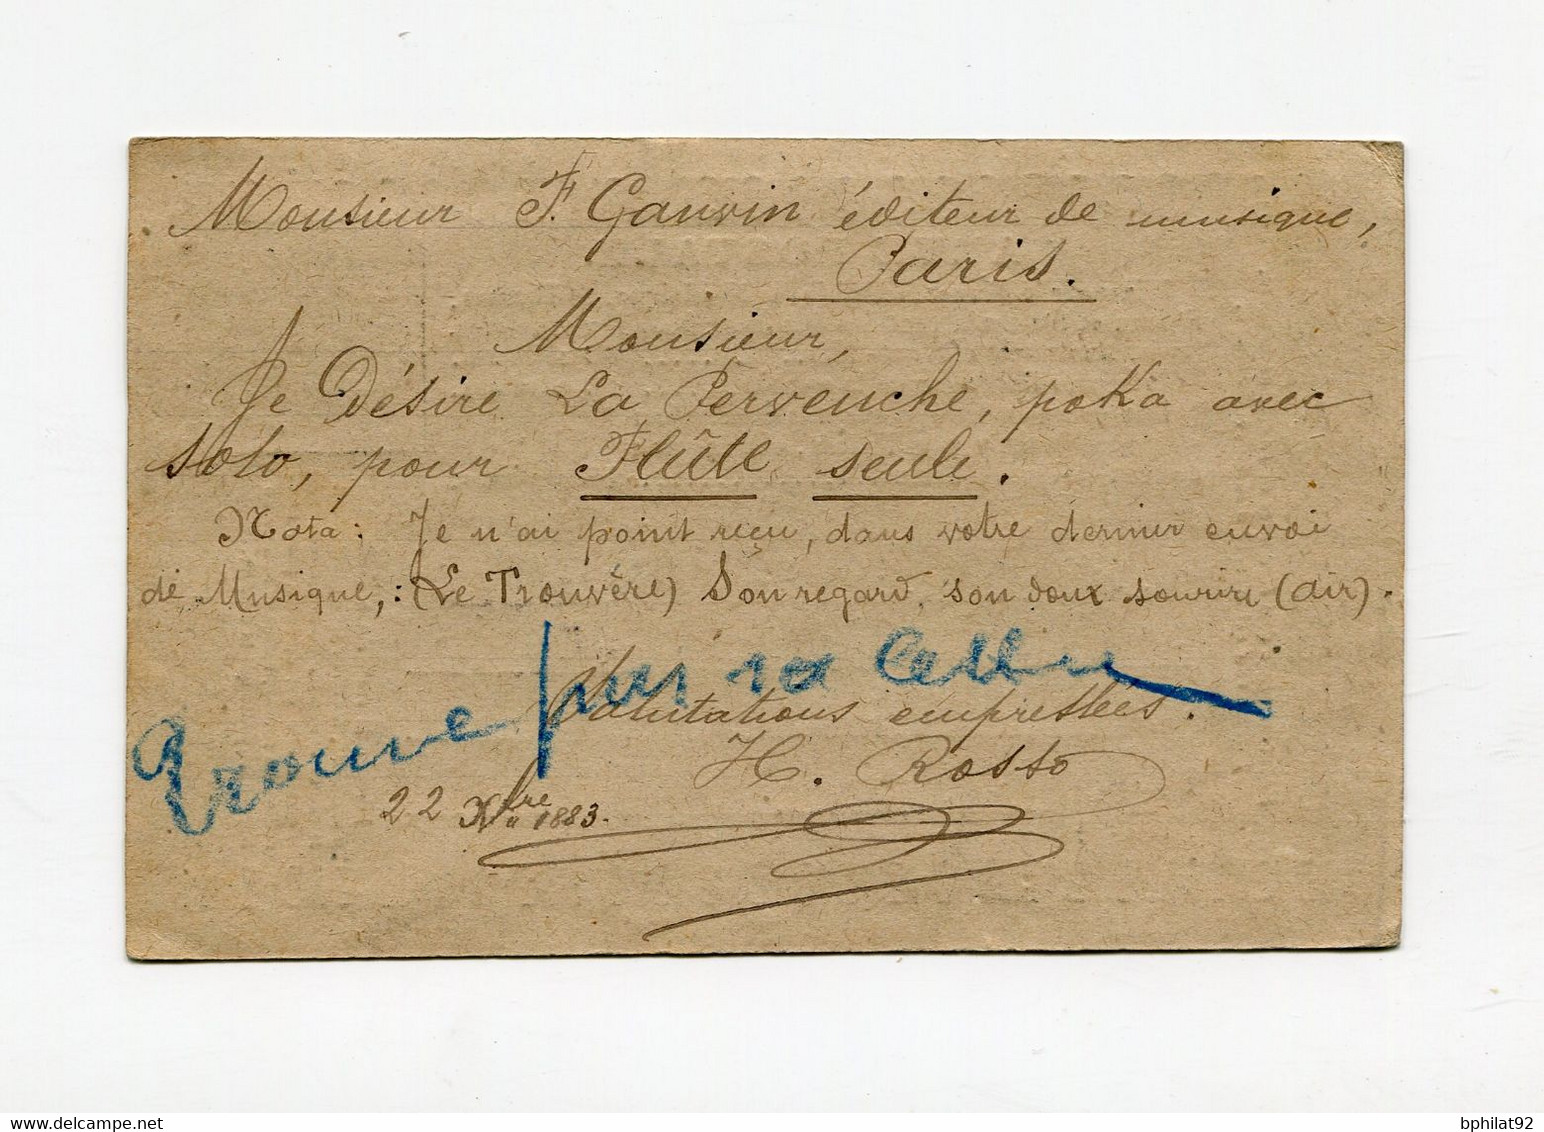 Monsieur F. Gauvin éditeur de musique,
Paris.
Monsieur,
Je Désire La Pervenche, poKa avec
solo, pour Flûte seule.
Nota: Je n'ai point reçu, dans votre dernier envoi
de Musique,: (Le Trouvère) Son regard, son doux sourire (air).
Salutations empressées.
H. Rosso
22 Xbre 1883.
bphilat92